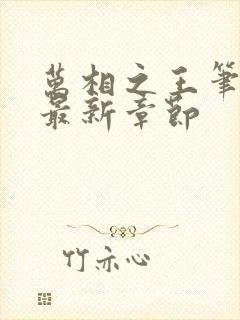 萬相之王筆
最新章節
竹亦心